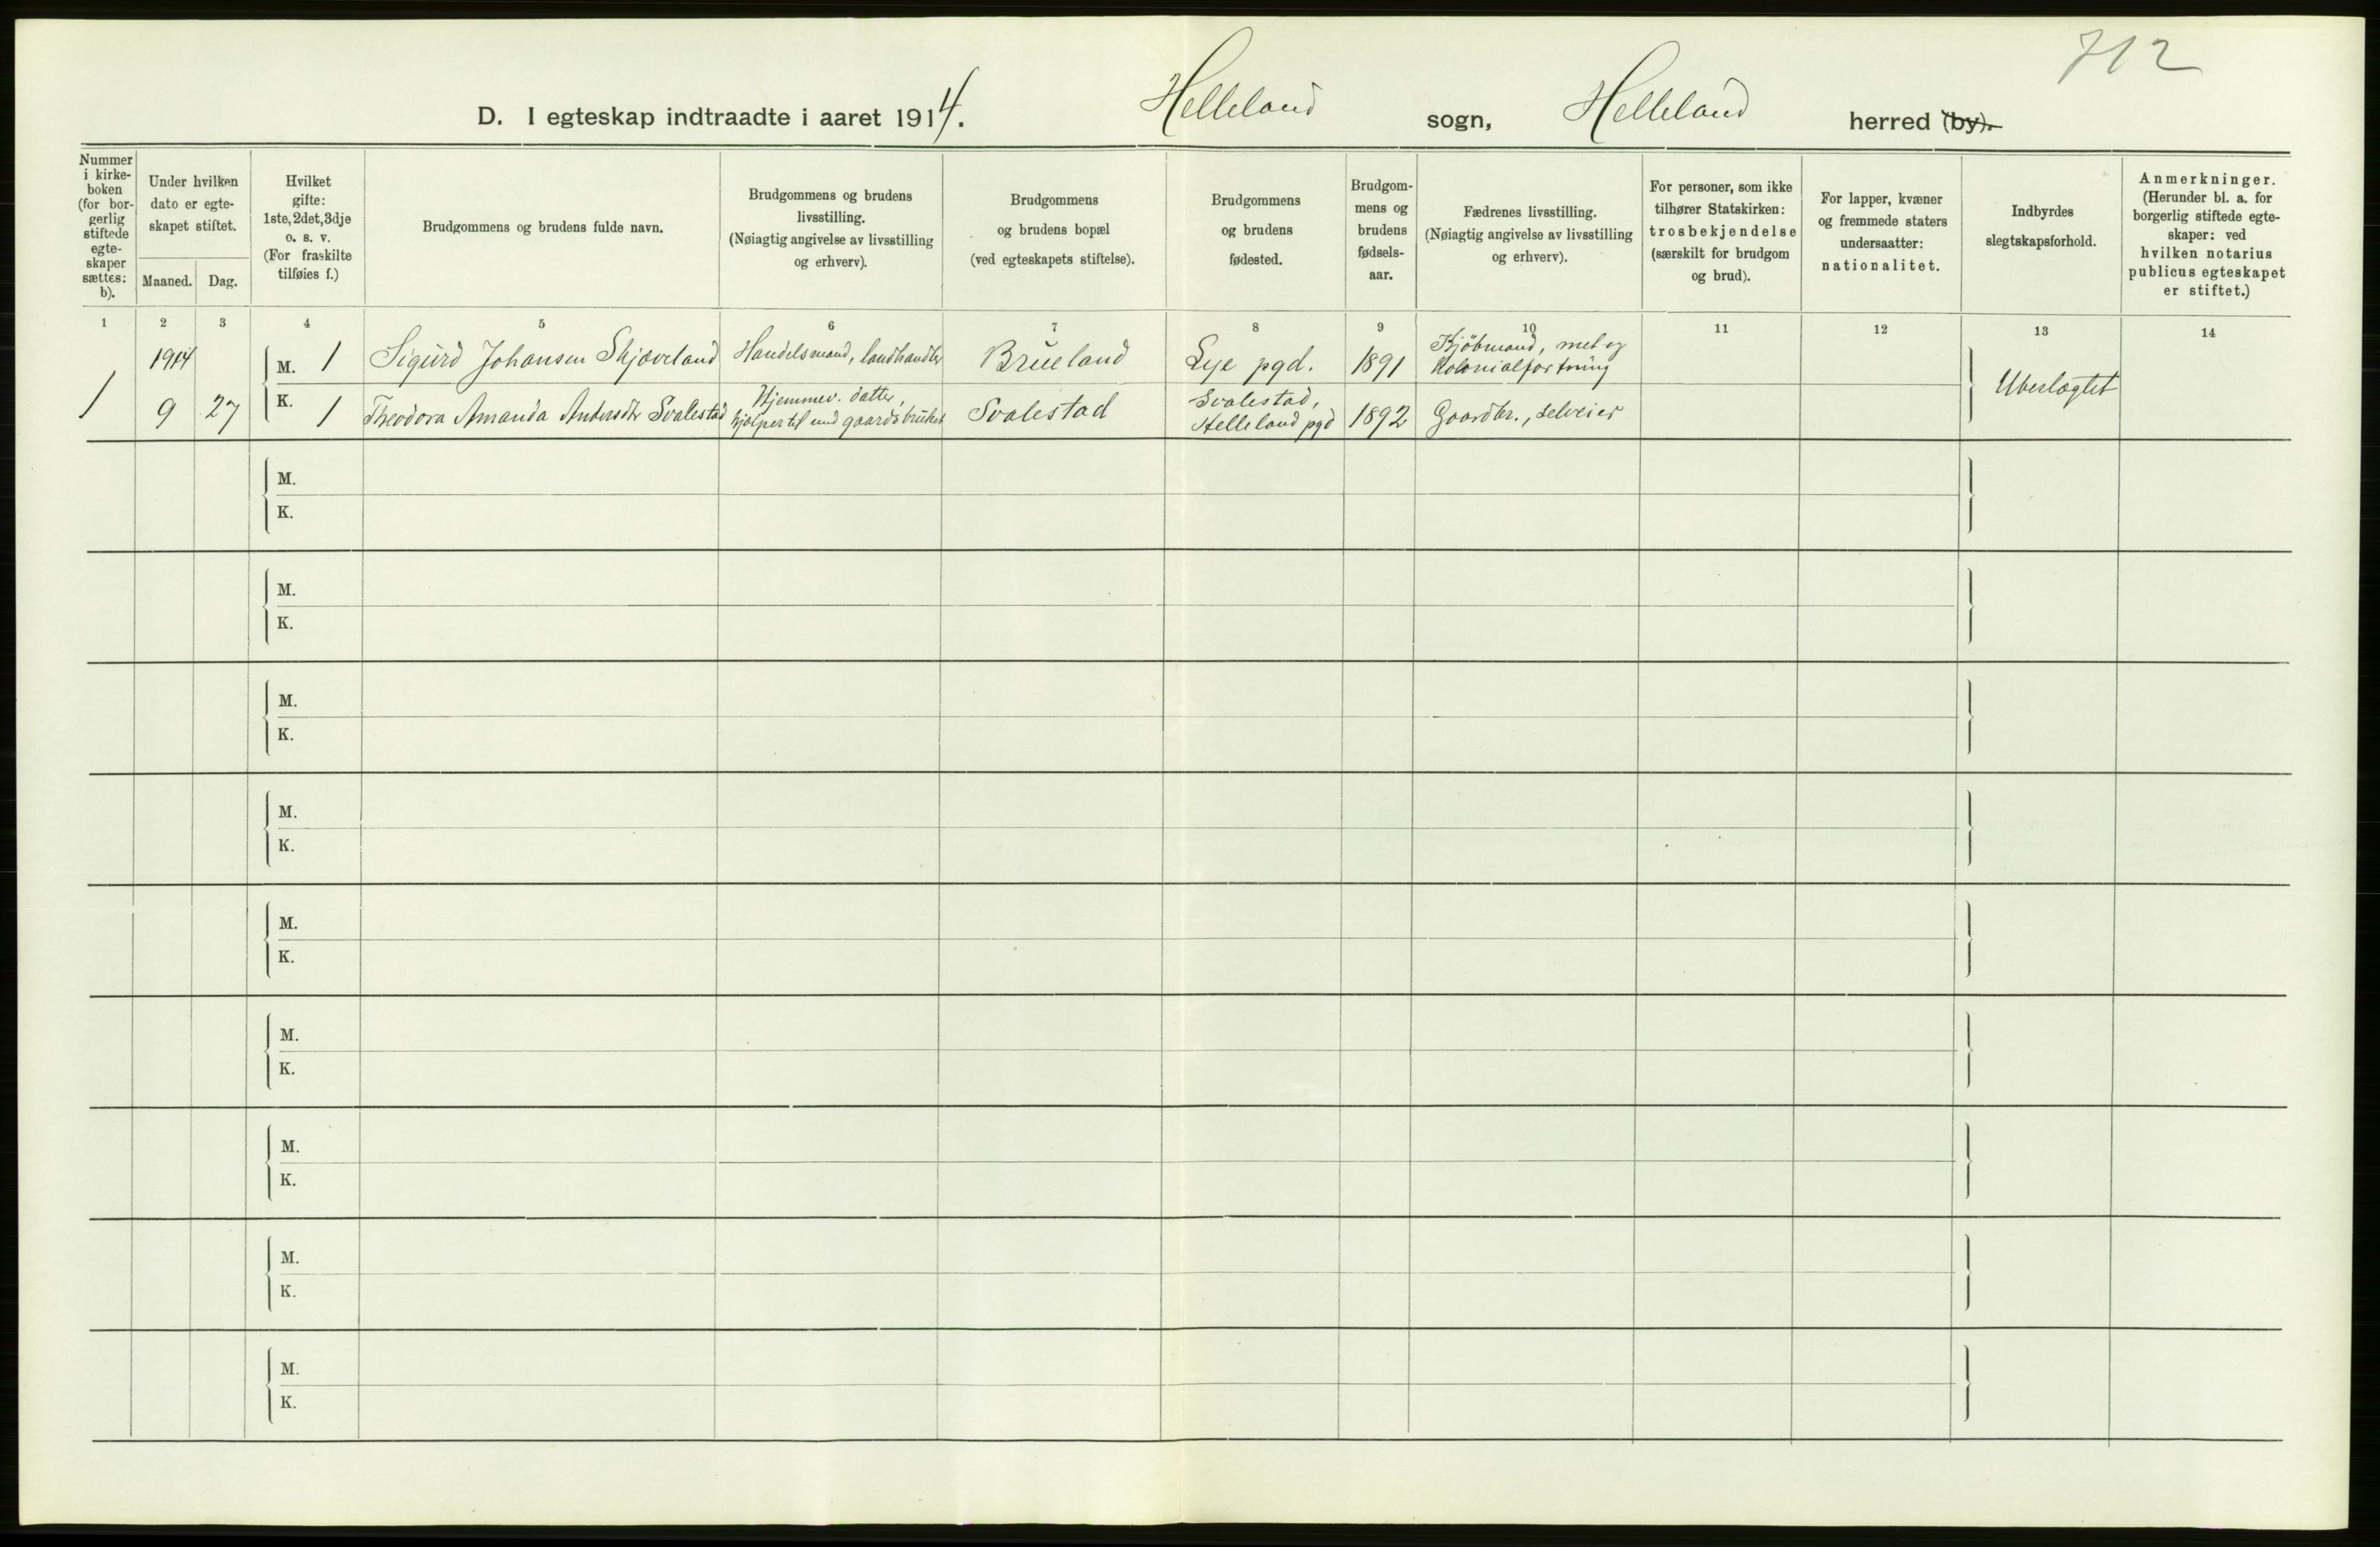 712
D. I egteskap indtraadte i aaret 1914. Helleland sogn, Helleland herred (by).
Nummer i kirke-boken (for bor-gerlig stiftede egte-skaper sættes: b).
Under hvilken dato er egte-skapet stiftet.
Maaned. Dag.
Hvilket gifte: 1ste, 2det, 3dje o. s. v. (For fraskilte tilføies f.)
Brudgommens og brudens fulde navn.
Brudgommens og brudens livsstilling. (Nøiagtig angivelse av livsstilling og erhverv).
Brudgommens og brudens bopæl (ved egteskapets stiftelse).
Brudgommens og brudens fødested.
Brudgom-mens og brudens fødsels-aar.
Fædrenes livsstilling. (Nøiagtig angivelse av livsstilling og erhverv).
For personer, som ikke tilhører Statskirken: trosbekjendelse (særskilt for brudgom og brud).
For lapper, kvæner og fremmede staters undersaatter: nationalitet.
Indbyrdes slegtskapsforhold.
Anmerkninger. (Herunder bl. a. for borgerlig stiftede egte-skaper: ved hvilken notarius publicus egteskapet er stiftet.)
1 2 3 4 5 6 7 8 9 10 11 12 13 14
1914 M. 1 Sigurd Johansen Skjæveland Handelsmand, landhandler Brueland Lye pgd. 1891 Kjöbmand, mel og Kolonialforretning
1 9 27 K. 1 Theodora Amanda Andersdtr Svalestad Hjemmev. datter, hjælper til med gaardsbruket Svalestad Svalestad, Helleland pgd 1892 Gaardbr., selveier Ubeslægtet
M.
K.
M.
K.
M.
K.
M.
K.
M.
K.
M.
K.
M.
K.
M.
K.
M.
K.